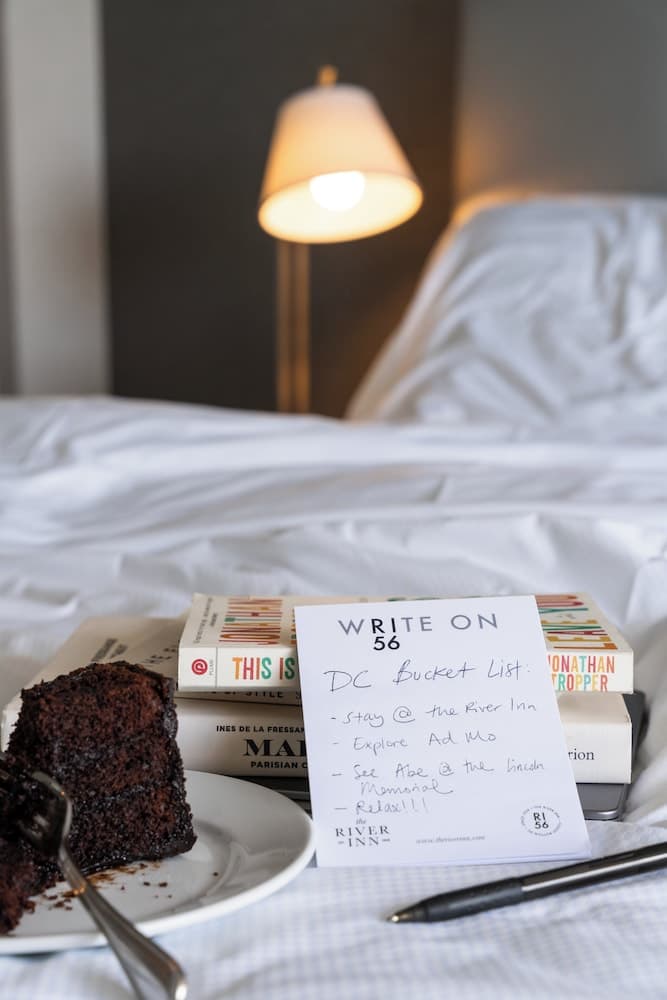 JONATHAN
LEAVE YOU
THIS IS
JONATHAN
TROPPER
PLUME
INES DE LA FRESSAN
MA
PARISIAN C
rion
WRITE ON
56
DC Bucket List:
- Stay @ the River Inn
- Explore Ad Mo
- See Abe @ the Lincoln
Memorial
- Relax!!!
the
RIVER
INN
www.theriverinn.com
RI
56